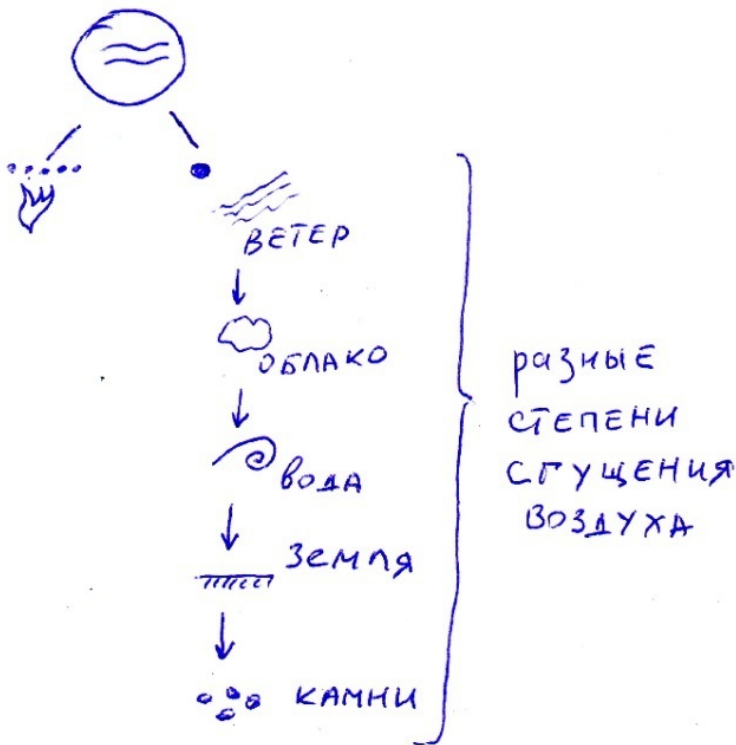 ВЕТЕР
ОБЛАКО
вода
Земля
КАМНИ
разные
степени
сгущения
воздуха